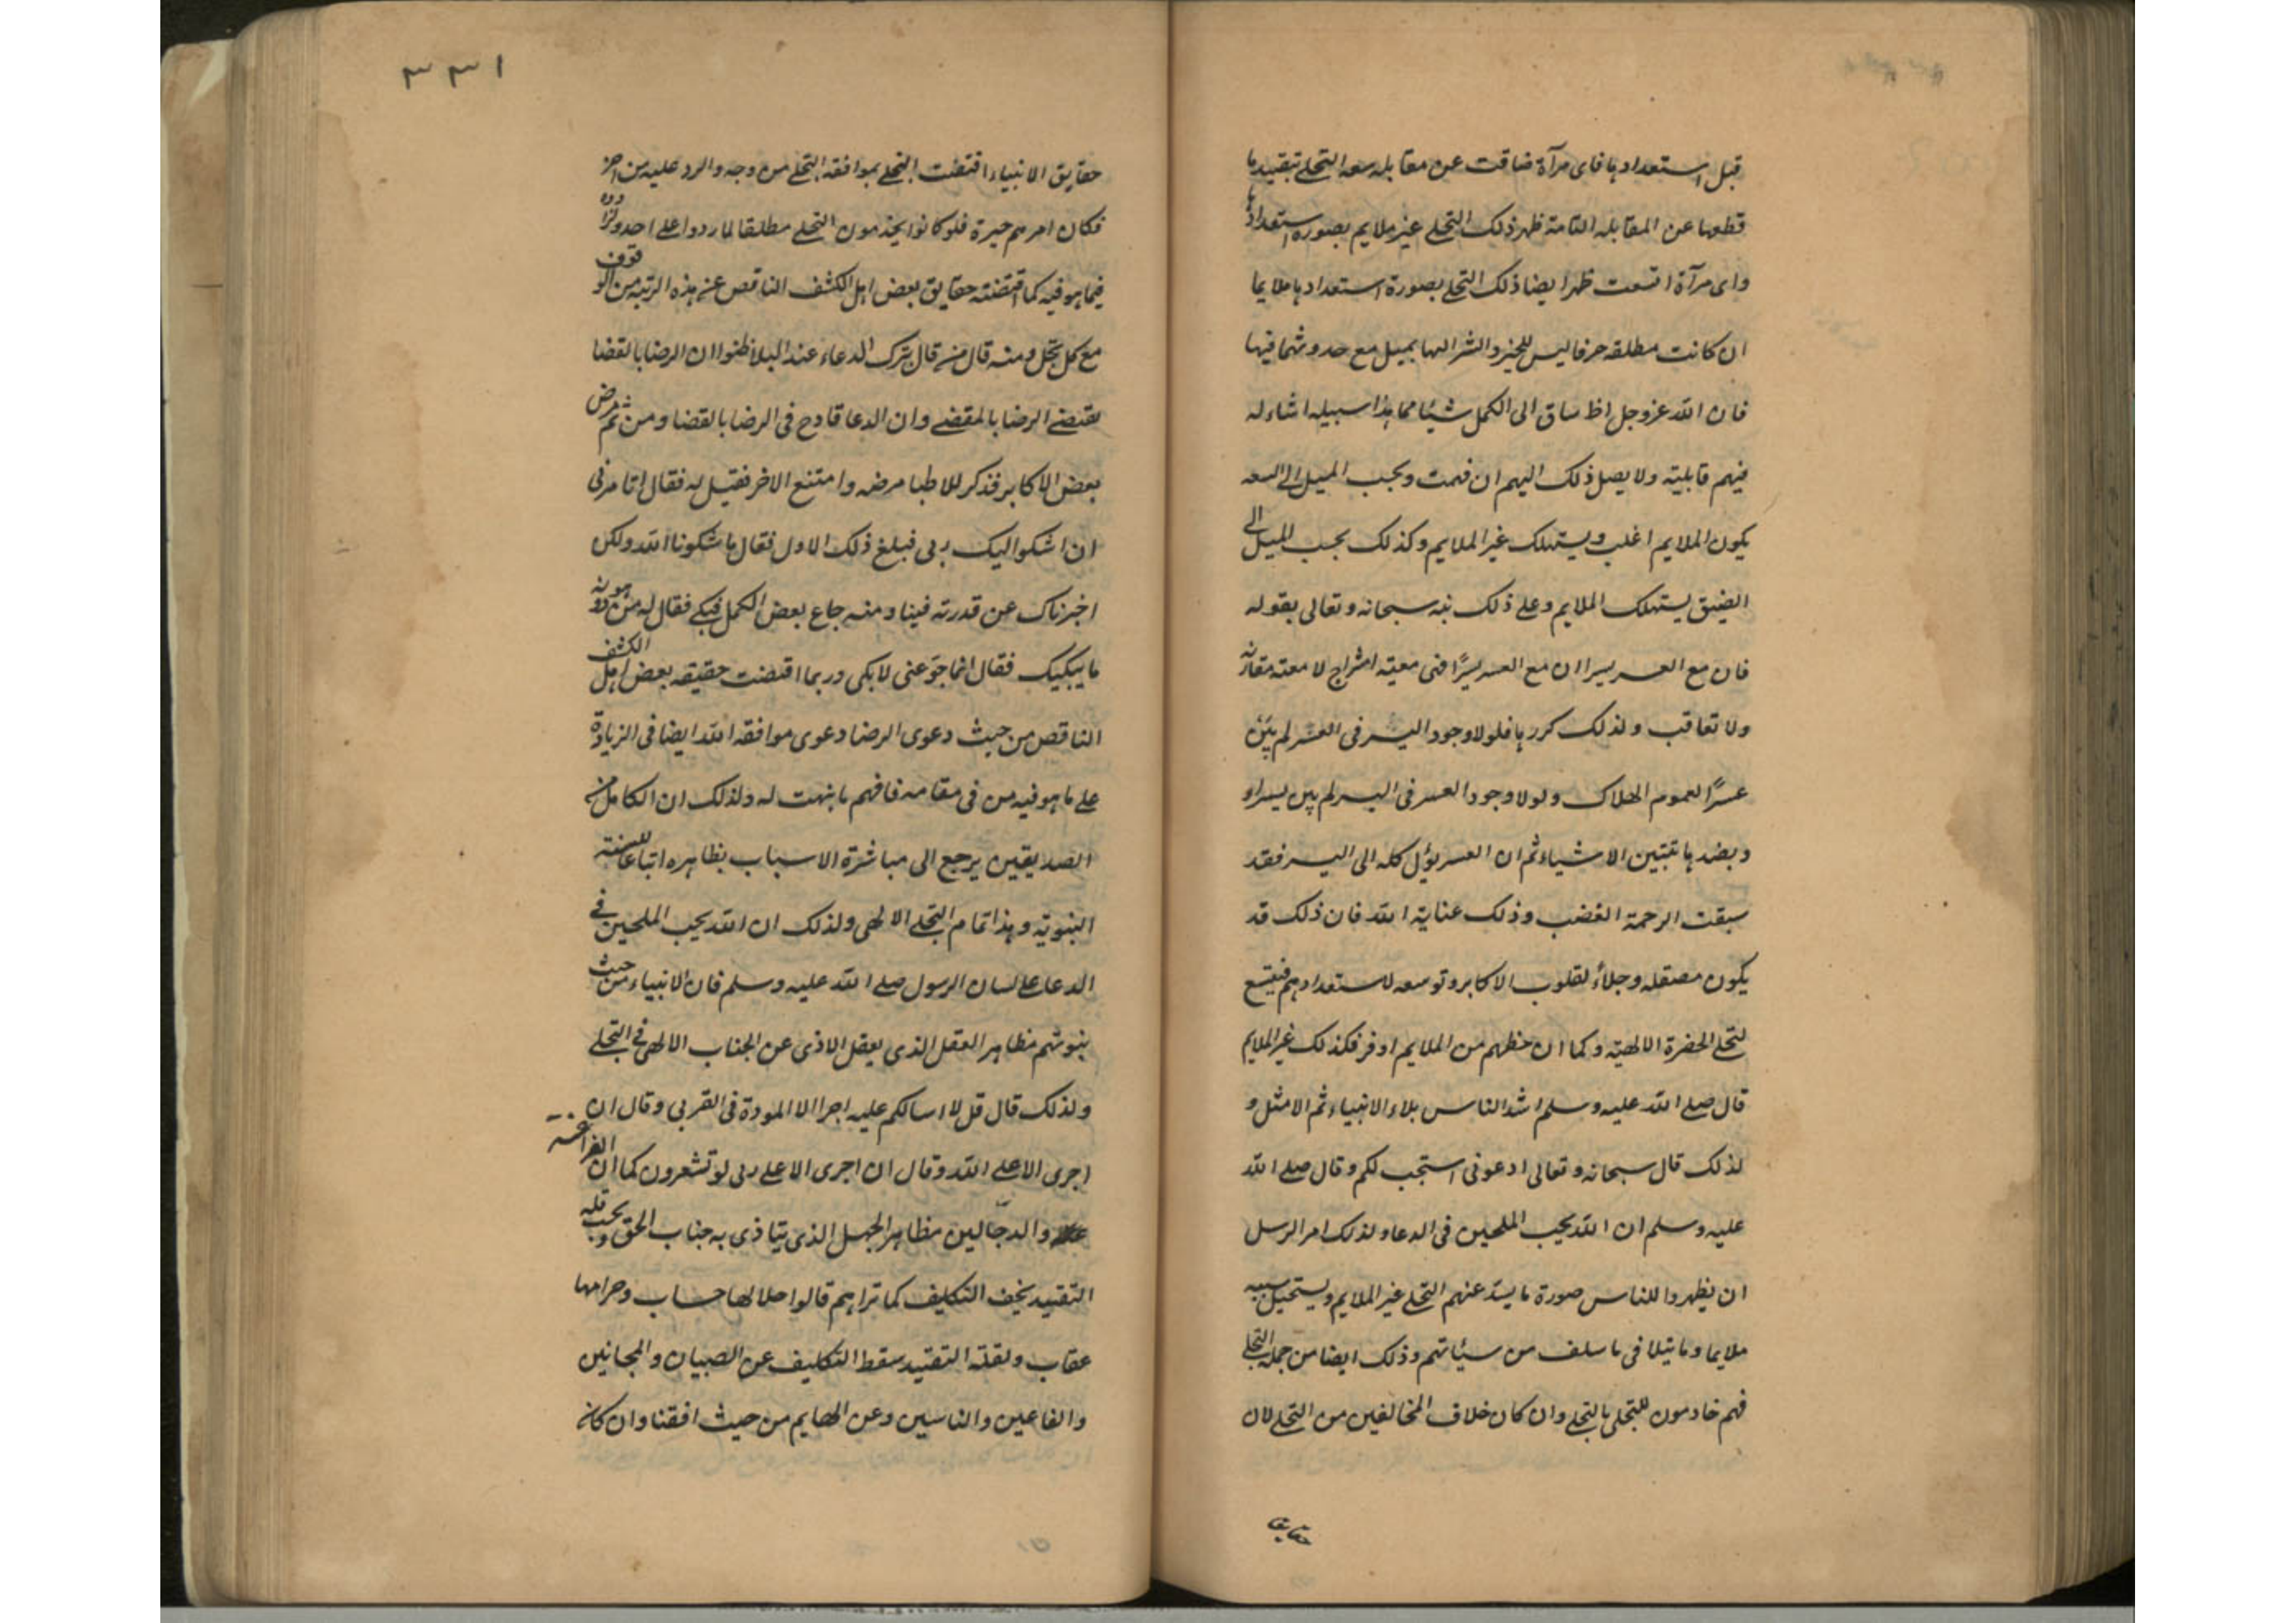 قبل استعدادها فاى مرآة ضاقت عن مقابله سعه التجلى بتقييدها
قطعها عن المقابله التامة ظهر ذلك التجلى غير ملايم بصوره استعدادها
واى مرآة اتسعت ظهر ايضا ذلك التجلى بصورة استعدادها ملايما
ان كانت مطلقه حرفا ليس للخير والشر اليها بميل مع حدوثهما فيها
فان الله عزوجل اظ ساق الى الكمل شيئا مما هذا سبيله اشاء له
فيهم قابلية ولا يصل ذلك اليهم ان فهمت وبحسب الميل الى السعه
يكون الملايم اغلب ويستهلك غير الملايم وكذلك بحسب الميل الى
الضيق يستهلك الملايم وعلى ذلك نبه سبحانه وتعالى بقوله
فان مع العسر يسرا ان مع العسر يسرًا فنى معية امتزاج لا معته مقارنه
ولا تعاقب ولذلك كررها فلولا وجود اليسر فى العسر لم يبن
عسرًا لعموم الهلاك ولولا وجود العسر فى اليسر لم يبن يسرا و
وبضدها تتبين الاشياء ثم ان العسر يؤل كله الى اليسر فقد
سبقت الرحمة الغضب وذلك عناية الله فان ذلك قد
يكون مصقله وجلاء لقلوب الاكابر وتوسعه لاستعدادهم فيتسع
لتجلى الحضرة الالهية وكما ان حظهم من الملايم اوفر فكذلك غير الملايم
قال صلى الله عليه وسلم اشد الناس بلاء الانبياء ثم الامثل و
لذلك قال سبحانه وتعالى ادعونى استجب لكم وقال صلى الله
عليه وسلم ان الله يحب الملحين فى الدعا ولذلك امر الرسل
ان يظهروا للناس صورة ما يسد عنهم التجلى غير الملايم ويستحيل بسببه
ملايما وما يتلافى ما سلف من سيئاتهم وذلك ايضا من جملة التجلى
فهم خادمون للتجلى بالتجلى وان كان خلاف المخالفين من التجلى لان
حقايق
٣٣١
حقايق الانبياء اقتضت التجلى بموافقه التجلى من وجه والرد عليه من آخر
فكان امرهم حيرة فلو كانوا يخدمون التجلى مطلقا لما ردوا على احد وزاده
فيما هو فيه كما اقتضته حقايق بعض اهل الكشف الناقص عن هذه الرتبه من الوقوف
مع كل تجل ومنه قال من قال بترك الدعاء عند البلا ظنوا ان الرضا بالقضا
يقتضى الرضا بالمقضى وان الدعا قادح فى الرضا بالقضا ومن ثم مرض
بعض الاكابر فذكر للاطبا مرضه وامتنع الاخر فقيل له فقال اتامرنى
ان اشكو اليك ربى فبلغ ذلك الاول فقال ما شكونا الله ولكن
اخبرناك عن قدرته فينا ومنه جاع بعض الكمل فبكى فقال له من هو دونه
ما يبكيك فقال انما جوعنى لابكى وربما اقتضت حقيقه بعض اهل الكشف
الناقص من حيث دعوى الرضا دعوى موافقه الله ايضا فى الزيادة
على ما هو فيه من فى مقامه فافهم ما نبهت له ولذلك ان الكامل من
الصديقين يرجع الى مباشرة الاسباب بظاهره اتباعا للسنته
النبوية وهذا تمام التجلى الالهى ولذلك ان الله يحب الملحين فى
الدعا على لسان الرسول صلى الله عليه وسلم فان الانبياء من حيث
نبوتهم مظاهر العقل الذى يعقل الاذى عن الجناب الالهى فى التجلى
ولذلك قال قل لا اسالكم عليه اجرا الا المودة فى القربى وقال ان
اجرى الا على الله وقال ان اجرى الا على ربى لو تشعرون كما ان الفراعنه
والدجّالين مظاهر الجهل الذى يتاذى به جناب الحق وبحسب قله
التقييد يخف التكليف كما تراهم قالوا حلالها حساب وحرامها
عقاب ولقلة التقييد سقط التكليف عن الصبيان والمجانين
والفاعين والناسين وعن البهايم من حيث افقنا وان كانه